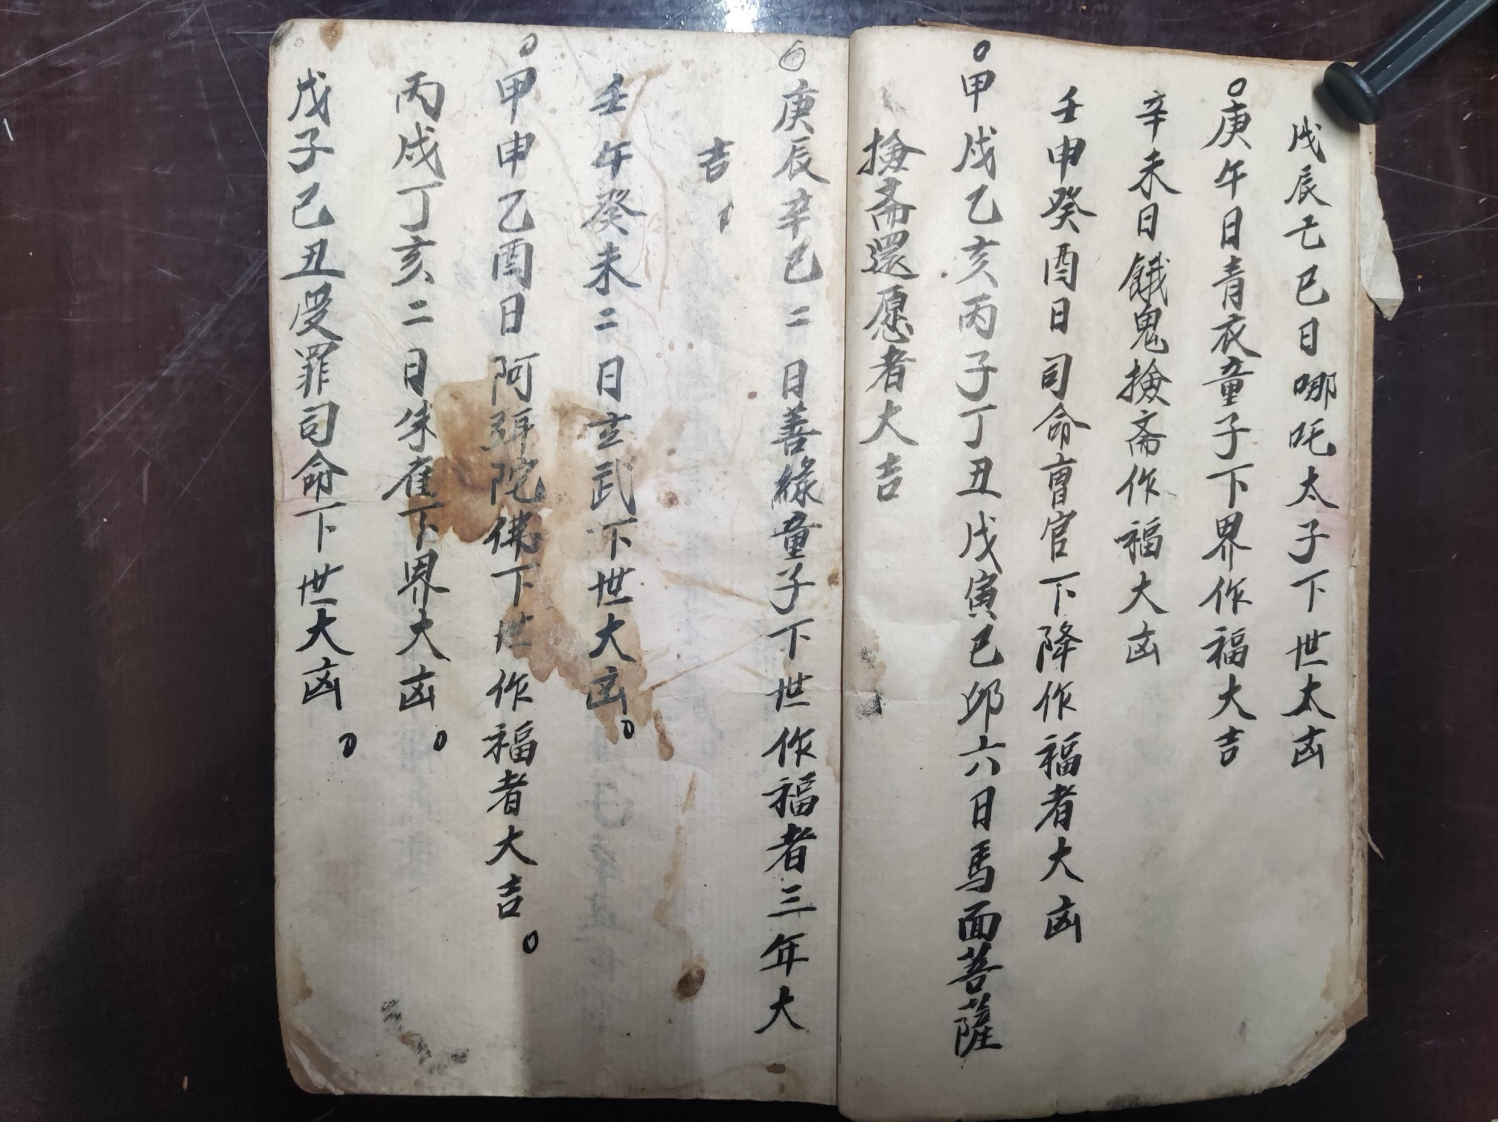 戊辰己巳日哪吒太子下世太凶
庚午日青衣童子下界作福大吉
辛未日餓鬼撿斋作福大凶
壬申癸酉日司命曺官下降作福者大凶
甲戌乙亥丙子丁丑戊寅己卯六日馬面菩薩
撿斋還愿者大吉
庚辰辛巳二日善緣童子下世作福者三年大
吉
壬午癸未二日玄武下世大凶
甲申乙酉日阿弥陀佛下世作福者大吉
丙戌丁亥二日朱雀下界大凶
戊子己丑受罪司命下世大凶